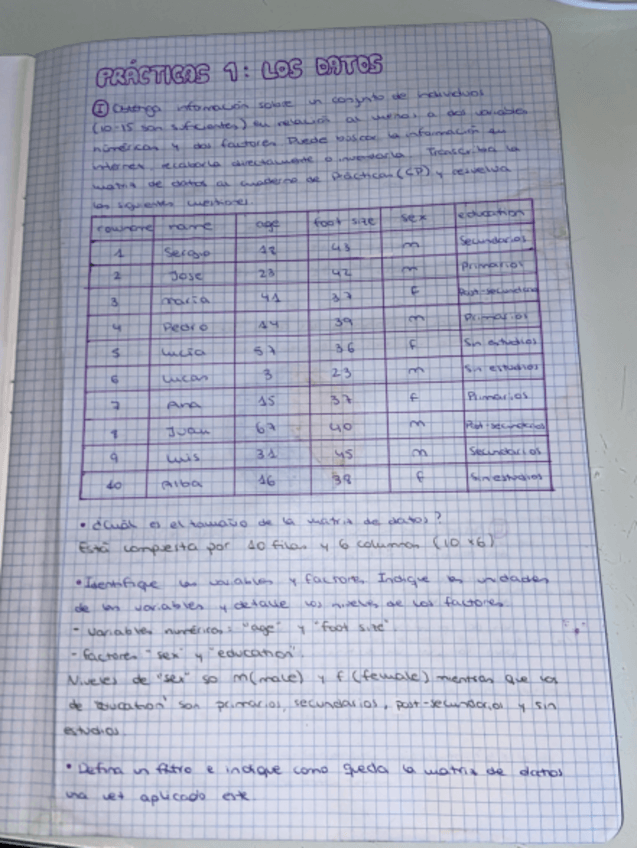 PRÁCTICAS 1: LOS DATOS
① Obtenga información sobre un conjunto de individuos
(10-15 son suficientes) en relación al menos a dos variables
numéricas y dos factores. Puede buscar la información en
internet, elaborarla directamente o inventarla. Transcriba la
matriz de datos al cuaderno de Prácticas (CP) y resuelva
las siguientes cuestiones.
rowname name age foot size sex education
1 Sergio 18 43 m Secundarios
2 Jose 23 42 m Primarios
3 maria 41 37 f Post-secundario
4 Pedro 14 39 m Primarios
5 Lucia 57 36 f Sin estudios
6 Lucas 3 23 m Sin estudios
7 Ana 15 37 f Primarios
8 Juan 67 40 m Post-secundarios
9 Luis 31 45 m Secundarios
10 Alba 16 38 f Sin estudios
• ¿Cuál es el tamaño de la matriz de datos?
Está compuesta por 10 filas y 6 columnas (10 x 6)
• Identifique las variables y factores. Indique las unidades
de las variables y detalle los niveles de los factores
- Variables numéricas: "age" y "foot size".
- Factores "sex" y "education".
Niveles de "sex" so m(male) y f (female) mientras que los
de "education" son primarios, secundarios, post-secundarios y sin
estudios.
• Defina un filtro e indique como queda la matriz de datos
una vez aplicado este.